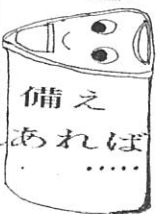 備え
あれば
.....